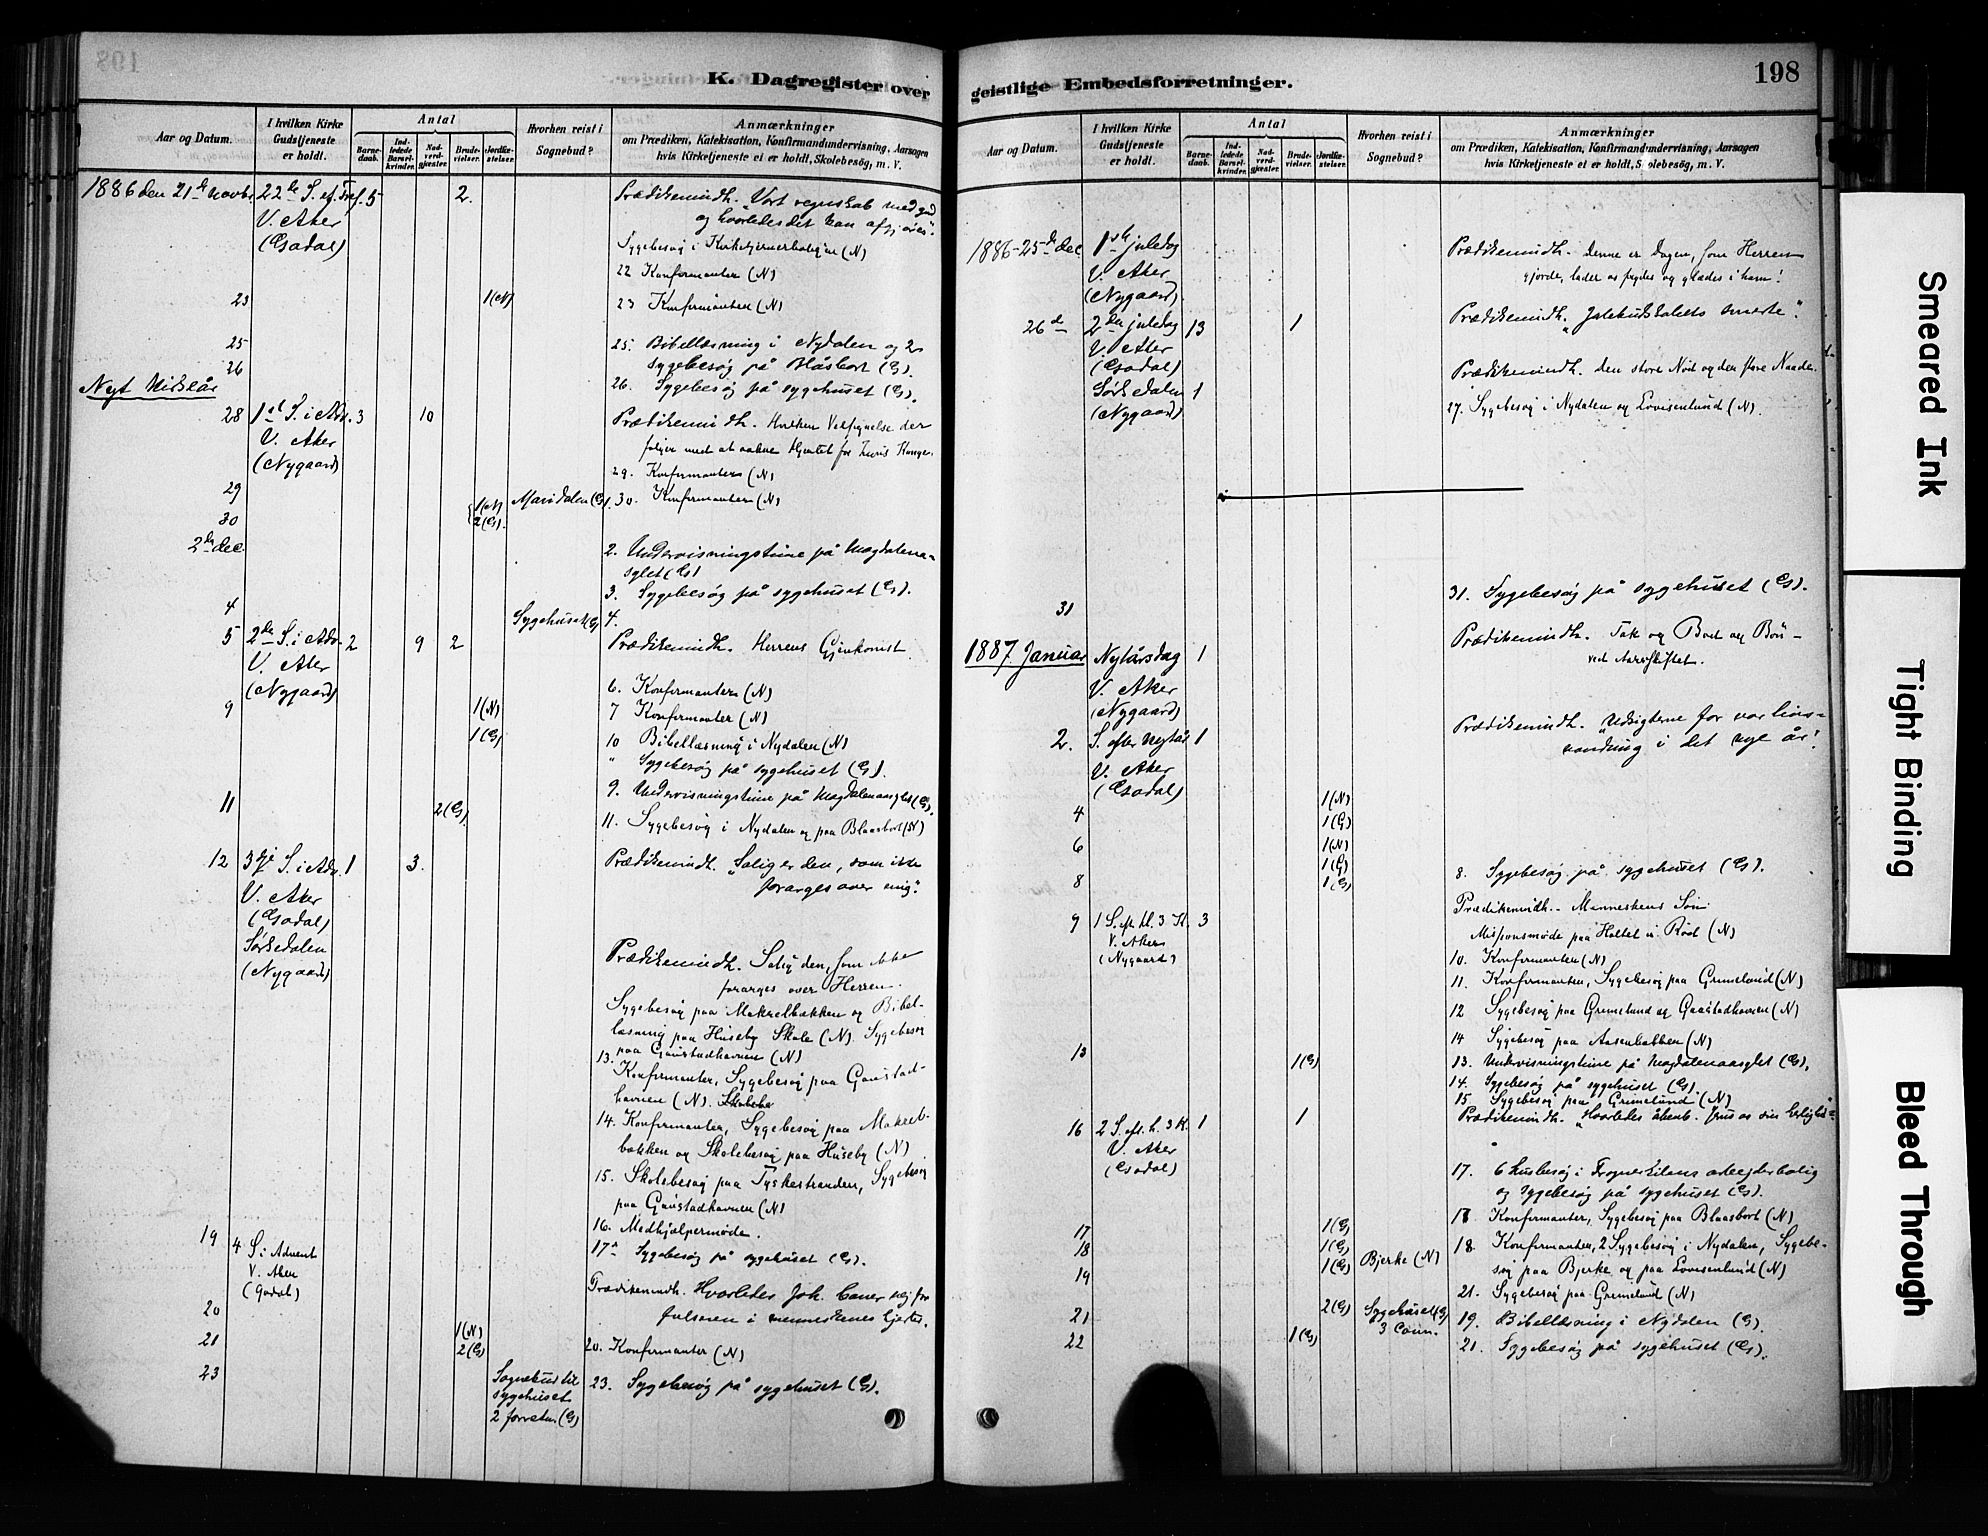 K. Dagregister over
Aar og Datum.
I hvilken Kirke Gudstjeneste er holdt.
Antal
Barnedaab.
Indledede Barselkvinder.
Nadverdgjester.
Brudevielser.
Jordfæstelser.
Hvorhen reist i Sognebud?
Anmærkninger
om Prædiken, Katekisation, Konfirmandundervisning, Aarsagen
hvis Kirketjeneste ei er holdt, Skolebesøg, m. V.
1886 den 21de Novbr. 22de S. ef. Tref. 5 2. Prædikenindh. "Vort regnskab med gud
V. Aker og hvorledes det kan afgjøres".
(Gjødal) Sygebesøg i (N)
22 Konfirmanter (N)
23 1 (N) 23 Konfirmanter (N)
25 25. Bibellæsning i Nydalen og 2
sygebesøg på Blåsbort (G).
26 26. Sygebesøg på sygehuset (G).
Nyt Kirkeår
28 1st S. i Adv. 3 10 Prædikenindh. Hvilken Velsignelse der
V. Aker følger med at aabne Hjertet for
(Nygaard) 29. Konfirmanter (N)
29 Maridalen (G). 30. Konfirmanter (N)
30 1 (N)
2 (G).
2den Dec. 2. Undervisningstime på Magdalena-
sylet (G)
3. Sygebesøg på sygehuset (G).
4 Sygehuset (G) 4.
5 2den S. i Adv. 2 9 2 Prædikenindh. Herrens Gjenkomst.
V. Aker
(Nygaard) 6. Konfirmanter (N)
9 1 (N) 7 Konfirmanter (N)
1 (G) 10 Bibellæsning i Nydalen (N)
" Sygebesøg på sygehuset (G).
9. Undervisningstime på Magdalenaasylet (G).
11 2 (G). 11. Sygebesøg i Nydalen og paa Blaasbort (N)
12 3je S. i Adv. 1 3. Prædikenindh. "Salig er den, som ikke
V. Aker forarges over mig".
(Gjødal)
Sørkedalen
(Nygaard) Prædikenindh. Salig den, som ikke
forarges over Herren.
Sygebesøg paa Makrelbækken og Bibel-
læsning paa Huseby Skole (N). Sygebesøg
paa Gaustadhavnen (N)
13. Konfirmanter, Sygebesøg paa Gaustad-
havnen (N).
14. Konfirmanter, Sygebesøg paa Makrel-
bækken og Skolebesøg paa Huseby (N)
15. Skolebesøg paa Tyskestranden, Sygebesøg
paa Gaustadhavnen (N)
16. Medhjælpermøde.
17. Sygebesøg på sygehuset (G).
19 4 S. i Advent Prædikenindh. Hvorledes Joh. baner vej for
V. Aker frelseren i menneskenes hjerter.
(Gjødal)
20
21 1 (N)
2 (G) 20. Konfirmanter (N)
23 Sognebud til 23. Sygebesøg på sygehuset (G).
sygehuset
2 forretn. (G)
geistlige Embedsforretninger.
198
Aar og Datum.
I hvilken Kirke Gudstjeneste er holdt.
Antal
Barnedaab.
Indledede Barselkvinder.
Nadverdgjester.
Brudevielser.
Jordfæstelser.
Hvorhen reist i Sognebud?
Anmærkninger
om Prædiken, Katekisation, Konfirmandundervisning, Aarsagen
hvis Kirketjeneste ei er holdt, Skolebesøg, m. V.
1886 - 25de Dec. 1ste juledag Prædikenindh. Denne er Dagen, som Herren
V. Aker gjorde, lader os frydes og glædes i ham!
(Nygaard)
26de 2den juledag 13 1 Prædikenindh. "Julebudskabets
V. Aker
(Gjødal)
Sørkedalen 1 Prædikenindh. Den store Nød og den store Naade.
(Nygaard) 27. Sygebesøg i Nydalen og Lovisenlund (N).
31 31. Sygebesøg på sygehuset (G).
1887. Januar Nytårsdag 1 Prædikenindh. Tak og Bod og Bøn -
V. Aker ved Aarsskiftet.
(Nygaard)
2. S. efter Nytår 1 Prædikenindh. "Udsigterne for vor livs-
V. Aker vandring i det nye år".
(Gjødal)
4 1 (N)
1 (G)
6 1 (N)
1 (G)
8 1 (G) 8. Sygebesøg på sygehuset (G).
9 1 S. eft. hl. 3 K. 3 Prædikenindh. - Menneskens Søn
V. Aker Missionsmøde paa Holtet (N)
(Nygaard) 10. Konfirmanter (N)
11. Konfirmanter, Sygebesøg paa Grimelund (N)
12 Sygebesøg paa Grimelund og Gaustadhavnen (N)
14 Sygebesøg paa Aasenbakken (N)
13 1 (G) 13. Undervisningstime på Magdalenaasylet (G).
14. Sygebesøg på sygehuset (G).
15 Sygebesøg paa Grimelund (N)
16 2 S. eft. h. 3 K. 1 1 Prædikenindh. "Hvorledes åbenb. Jesus os sin herlighed"
V. Aker
(Gjødal) 17. 6 husbesøg i Frognerkilens arbejderbolig
og sygebesøg på sygehuset (G).
17 1 (G) 17. Konfirmanter, Sygebesøg paa Blaasbort (N)
18 1 (G) 18. Konfirmanter, 2 Sygebesøg i Nydalen, Sygebe-
19 1 (G) Bjerke (N) søg paa Bjerke og paa Lovisenlund (N)
21. Sygebesøg paa Grimelund (N)
21 2 (G) Sygehuset (G) 19. Bibellæsning i Nydalen (G).
3 Com.
22 1 (G) 21. Sygebesøg på sygehuset (G).
Smeared Ink
Tight Binding
Bleed Through